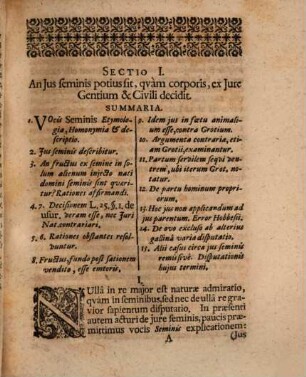 SECTIO I.
An Jus seminis potius sit, qvàm corporis, ex Jure
Gentium & Civili decidit.
SUMMARIA.
1. VOcis Seminis Etymologia, Homonymia & descriptio.
2. Jus seminis describitur.
3. An fructus ex semine in solum alienum injecto nati domini seminis sint quæritur? Rationes affirmandi.
4. 7. Decisionem L. 25. §. 1. de usur. veram esse, nec Juri Nat. contrariari.
5. 6. Rationes obstantes resolvuntur.
8. Fructus, fundo post sationem vendito, esse emtoris.
9. Idem jus in fœtu animalium esse, contra Grotium.
10. Argumenta contraria, etiam Grotii, examinantur.
11. Partum servilem sequi ventrem, ubi iterum Grot. notatur.
12. De partu hominum propriorum,
13. Hic jus non applicandum ad jus parentum. Error Hobbesii,
14. De ovo excluso ab alterius gallinâ varia disputatio.
15. Alii casus circa jus seminis remissivè. Disputationis hujus termini.
I.
NUllâ in re major est naturæ admiratio,
qvàm in seminibus, sed nec de ullâ re gravior
sapientum disputatio. In præsenti
autem acturi de jure seminis, paucis præmittimus
vocis Seminis explicationem:
A
(Jus